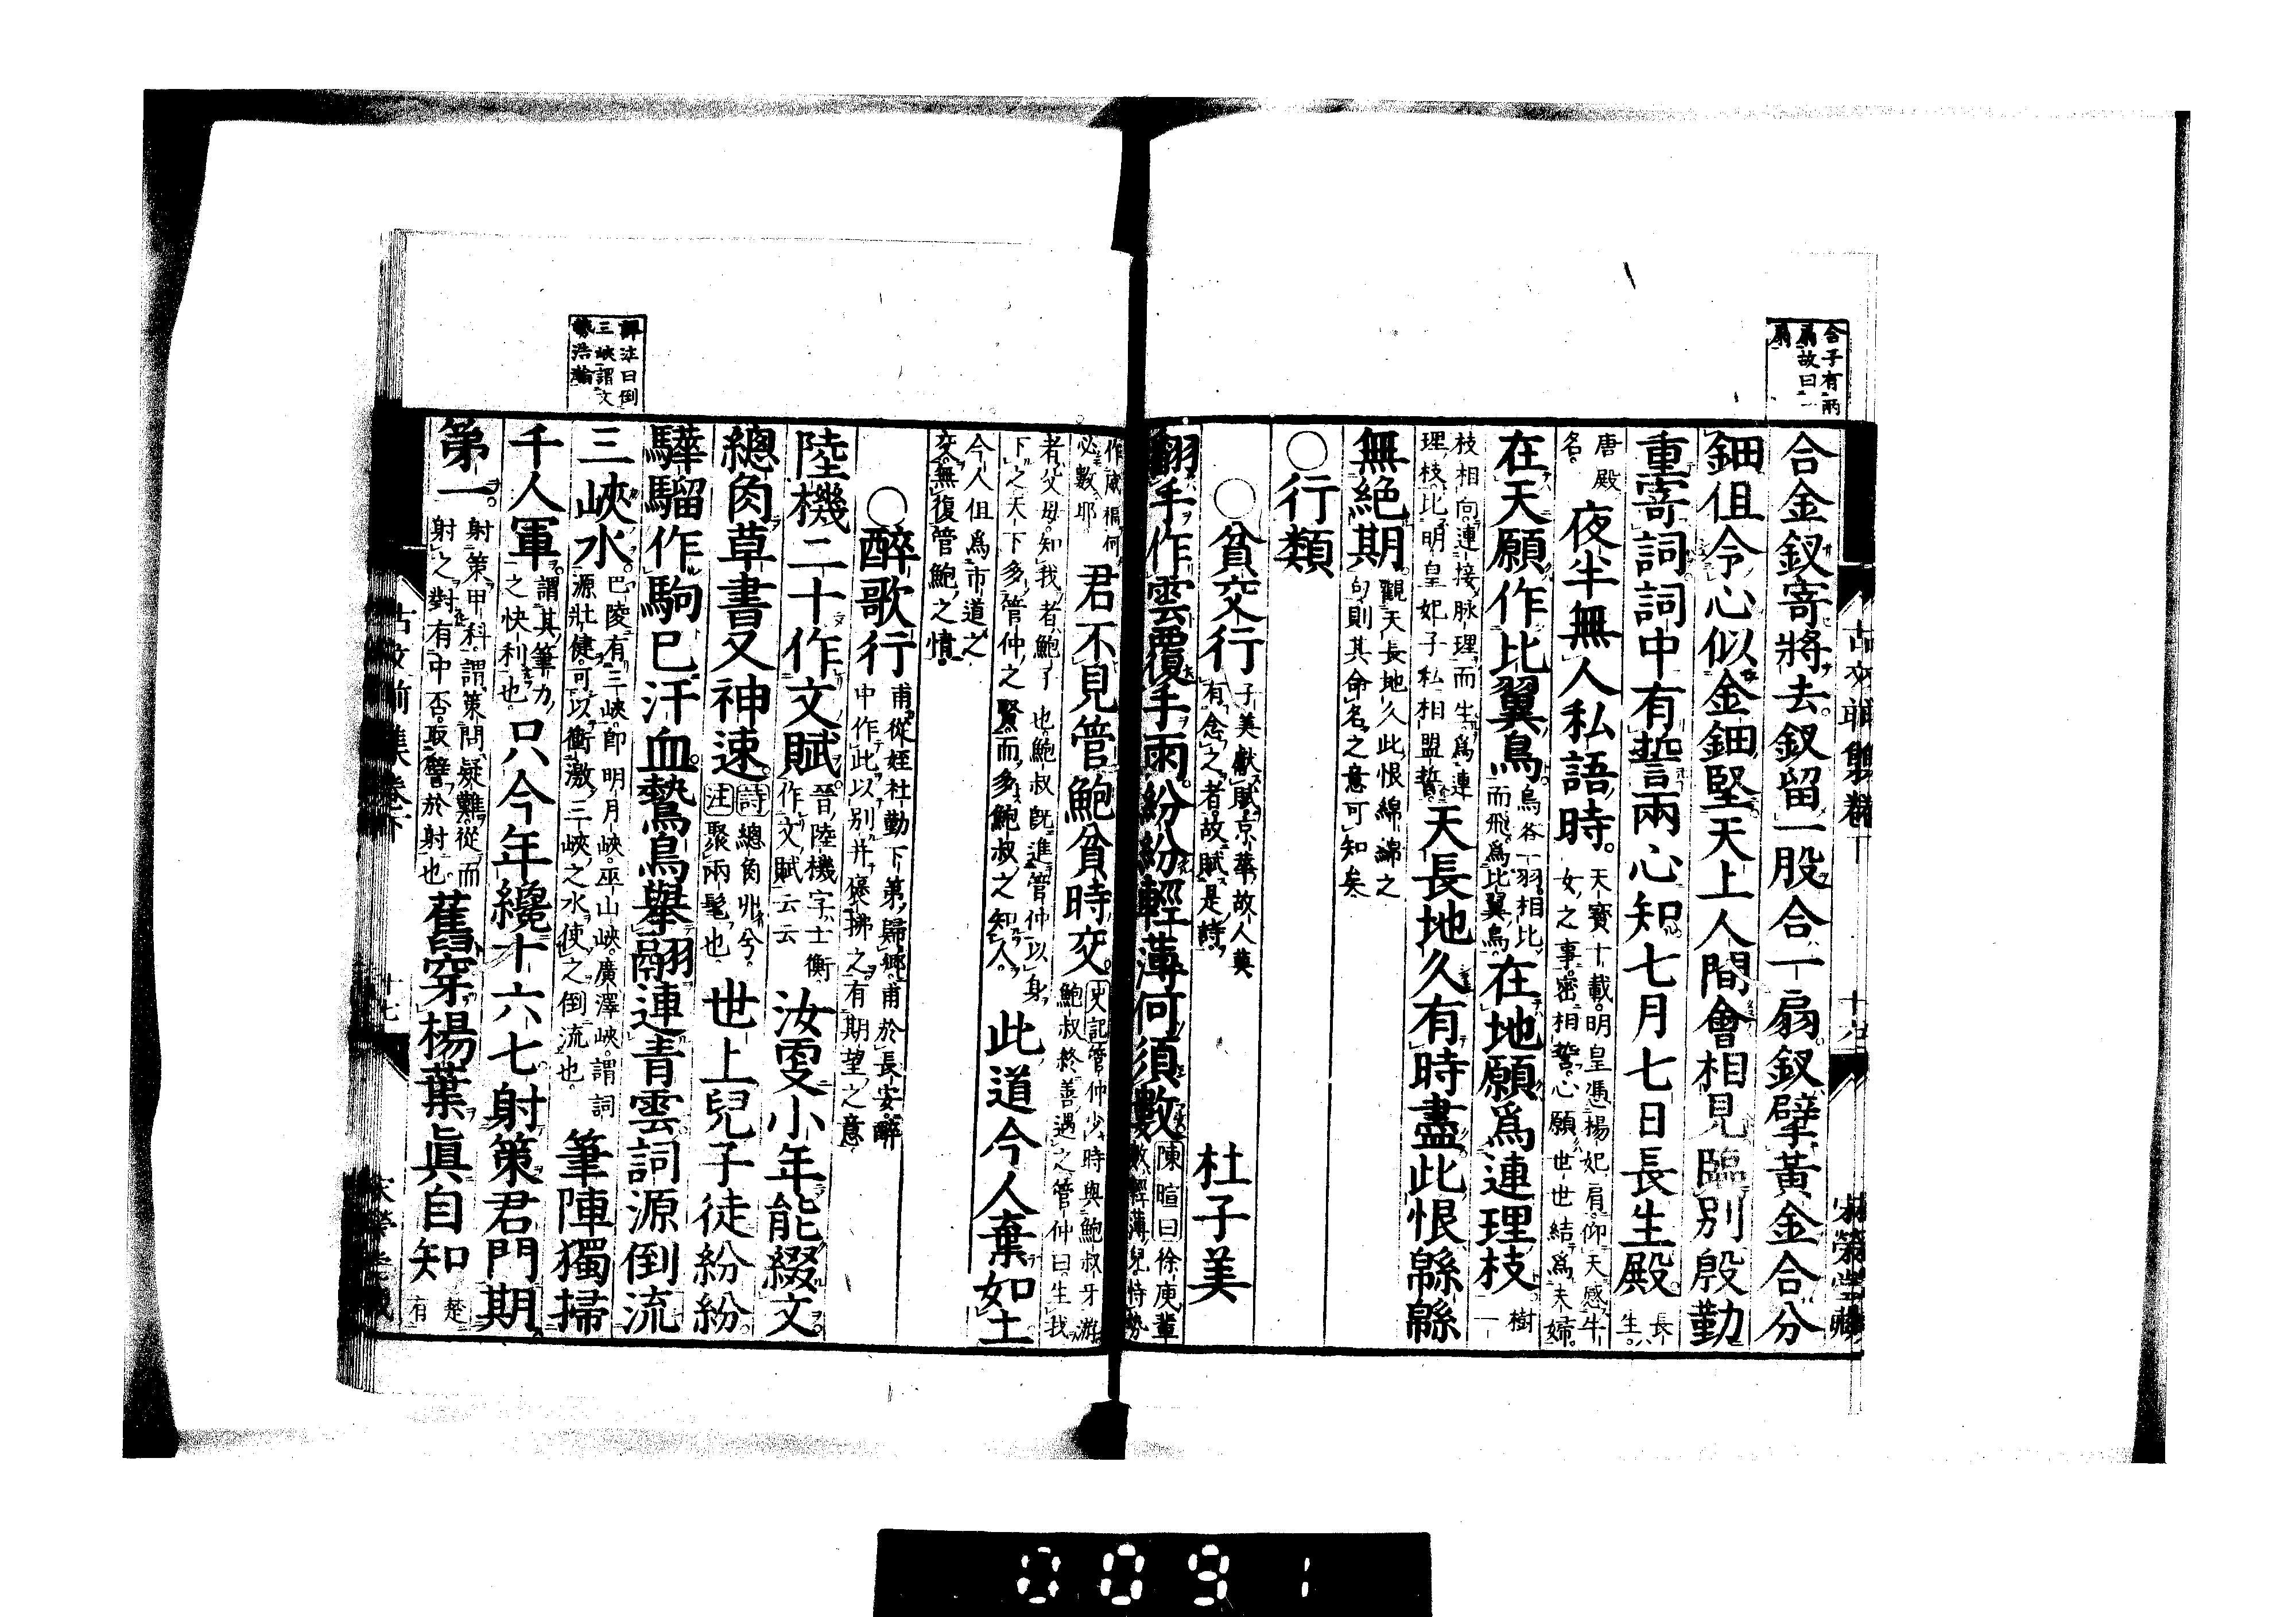 合子有兩
扇故曰一
扇
合金釵寄將去釵留一股合一扇釵擘黃金合分
鈿但令心似金鈿堅天上人間會相見臨別殷勤
重寄詞詞中有誓兩心知七月七日長生殿長生
唐殿名夜半無人私語時天寶十載明皇憑楊妃肩仰天感牛女之事密相誓心願世世結爲夫婦
在天願作比翼鳥鳥各一羽相比而飛爲比翼鳥在地願爲連理枝樹一
枝相向連接脉理而生爲連理枝比明皇妃子私相盟誓天長地久有時盡此恨緜緜
無絕期觀天長地久此恨綿綿之句則其命名之意可知矣
○行類
○貧交行子美獻賦京華故人莫有念之者故賦是詩 杜子美
翻手作雲覆手雨紛紛輕薄何須數陳暄曰徐庾輩數輕薄兒恃勢
作威福何必數耶君不見管鮑貧時交史記管仲少時與鮑叔牙游鮑叔終善遇之管仲曰生我
者父母知我者鮑子也鮑叔旣進管仲以身下之天下多管仲之賢而多鮑叔之知人此道今人棄如土
今人但爲市道之交無復管鮑之情
○醉歌行甫從姪杜勤下第歸鄉甫於長安醉中作此以別幷褒拂之有期望之意
陸機二十作文賦晉陸機字士衡作文賦云云汝更小年能綴文
總角草書又神速詩總角丱兮注聚兩髦也世上兒子徒紛紛
驊騮作駒已汗血鷙鳥舉翮連青雲詞源倒流
評注曰倒
三峽謂文
勢浩瀚
三峽水巴陵有三峽卽明月峽巫山峽廣澤峽謂詞源壯健可以衝激三峽之水使之倒流也筆陣獨掃
千人軍謂其筆力之快利也只今年纔十六七射策君門期
第一射策甲科謂策問疑難從而射之對有中否取譬於射也舊穿楊葉眞自知楚有